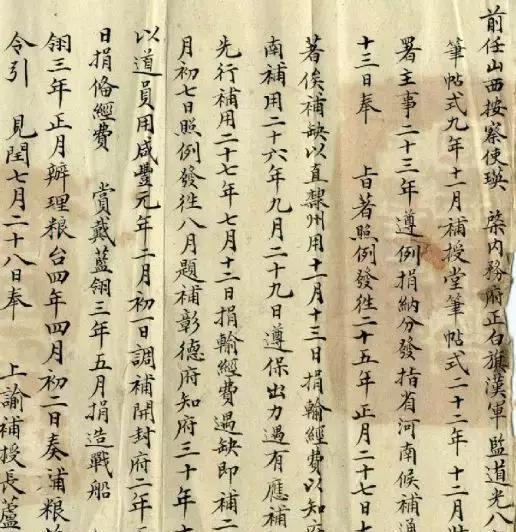 前任山西按察使瑛 棨內務府正白旗漢軍監道光八
筆帖式九年十一月補授堂筆帖式二十二年十二月
署主事二十三年遵例捐納分發指省河南候補通
十三日奉 旨著照例發往二十五年正月二十七日
著俟補缺以直隸州用十一月十三日捐輸經費以知
南補用二十六年九月二十九日遵保出力遇有應補
先行補用二十七年七月十二日捐輸經費遇缺即補二
月初七日照例發往八月題補彰德府知府三十年
以道員用咸豐元年二月初一日調補開封府二年
日捐備經費 賞戴藍翎三年五月捐造戰船
翎三年正月辦理粮台四年四月初二日奏浦粮
令引 見閏七月二十八日奉 上諭補授長蘆